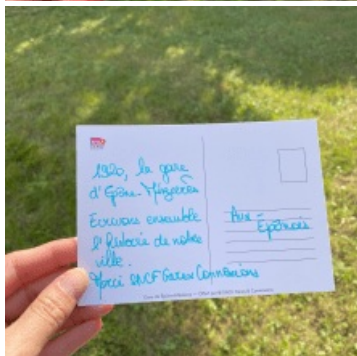 SNCF
1920, la gare
d'Epône-Mézières
Ecrivons ensemble
l'histoire de notre
ville.
Merci SNCF Gares Connexions
Aux
Epônois